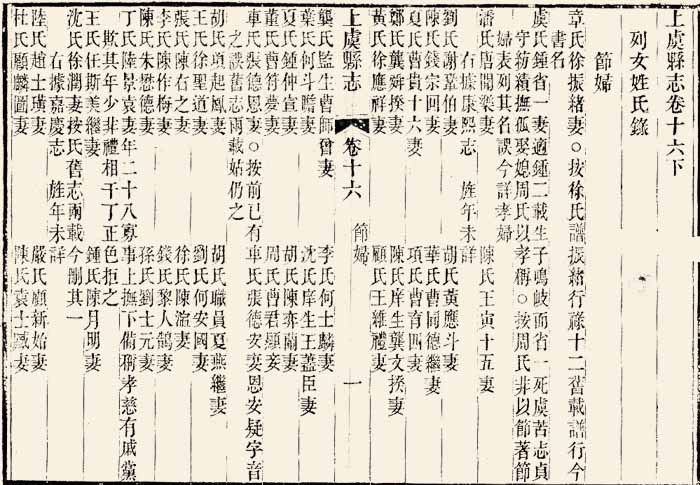 上虞縣志卷十六下
列女姓氏錄
節婦
章氏徐振緒妻○按徐氏譜振緒行祿十二舊載譜行今
書名
虞氏鍾省一妻適鍾二載生子鳴岐而省一死虞苦志貞
守紡績撫孤娶媳周氏以孝稱○按周氏非以節著節
婦表列其名誤今詳孝婦
潘氏唐開榘妻
陳氏王寅十五妻
右據康熙志 旌年未詳
劉氏謝葦伯妻
胡氏黃應斗妻
陳氏錢宗回妻
華氏曹尙德繼妻
夏氏曹貴十六妻
項氏曹育四妻
鄭氏龔舜揆妻
陳氏庠生龔文揆妻
黃氏徐應祥妻
顧氏王維禮妻
上虞縣志
卷十六
節婦
一
龔氏監生曹師曾妻
李氏何士麟妻
葉氏何斗膽妻
沈氏庠生王藎臣妻
夏氏鍾仲宣妻
胡氏陳亦蘭妻
董氏曹符夢妻
周氏曹君順妾
車氏張德恩妻○按前已有車氏張德安妻恩安疑字音
之譌舊志兩載姑仍之
胡氏項起鳳妻
胡氏職員夏燕繼妻
王氏徐聖道妻
劉氏何安國妻
張氏陳右之妻
徐氏陳溢妻
李氏陳作梅妻
錢氏黎人鵠妻
陳氏朱懋德妻
孫氏劉士元妻
丁氏陸景袁妻年二十八寡事上撫下備稱孝慈有戚黨
欺其年少非禮相干丁正色拒之
王氏任斯美繼妻
鍾氏陳月明妻
沈氏徐潤妻按氏舊志兩載今刪其一
右據嘉慶志 旌年未詳
陸氏趙士璜妻
嚴氏顧新始妻
杜氏顧麟圖妻
陳氏袁士感妻